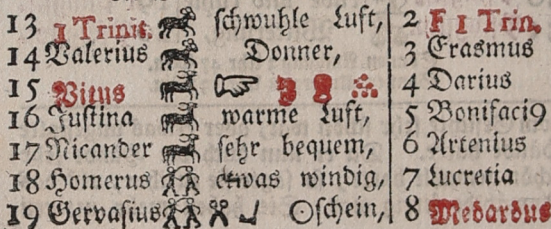 13 1 Trinit. schwuhle Luft, 2 F 1 Trin.
14 Valerius Donner, 3 Erasmus
15 Vitus ☞ 4 Darius
16 Justina warme Luft, 5 Bonifaci9
17 Nicander sehr bequem, 6 Artenius
18 Homerus etwas windig, 7 Lucretia
19 Gervasius ☉schein, 8 Medardus